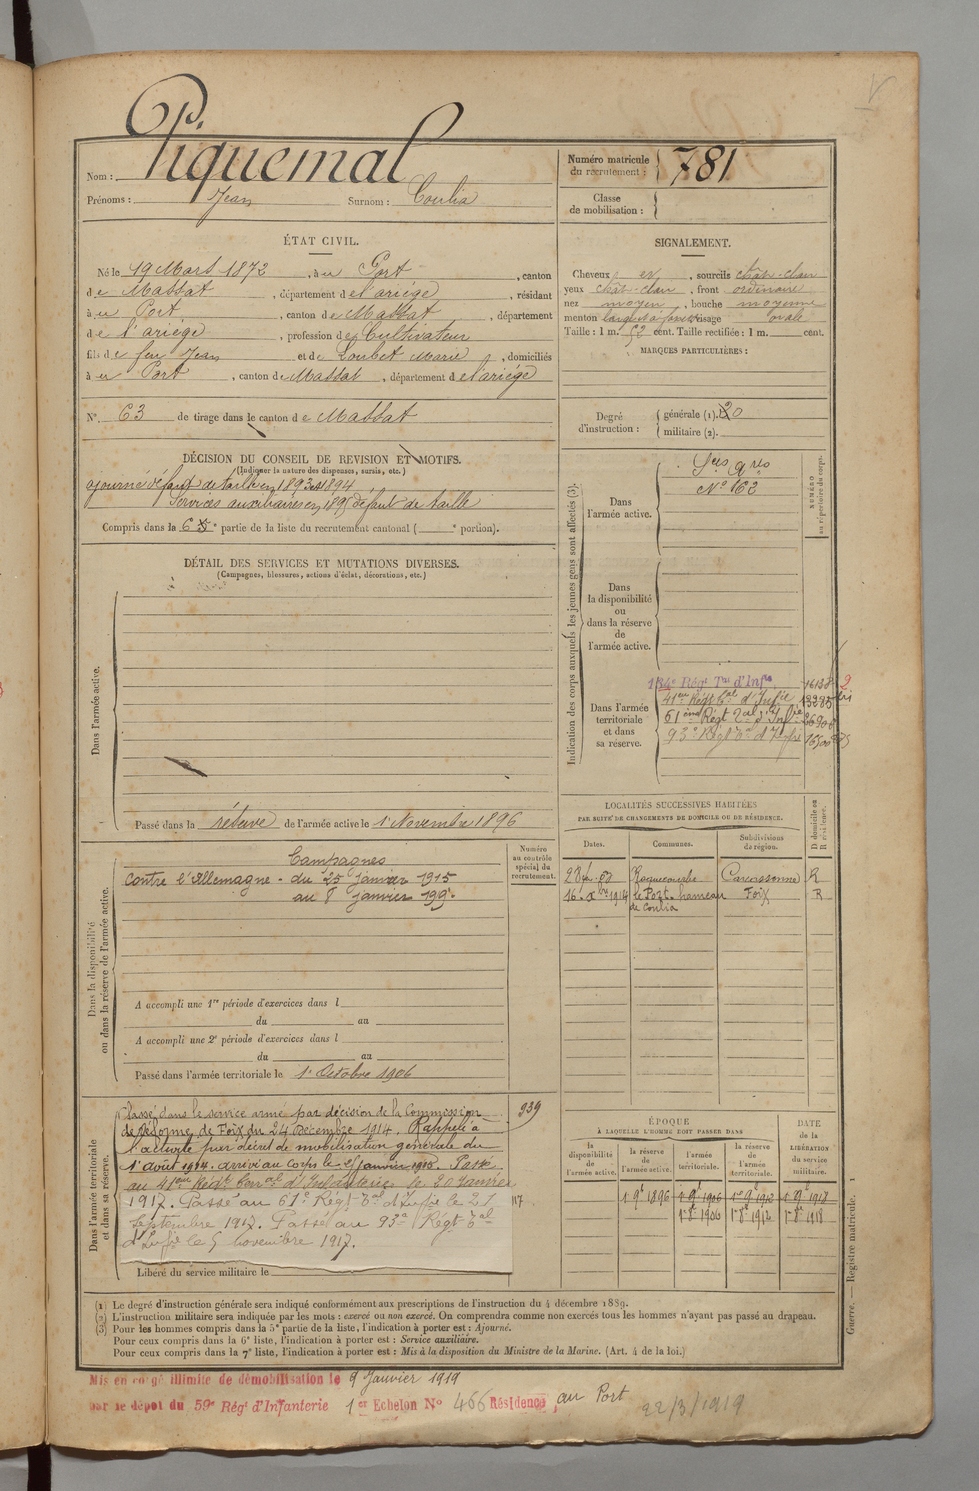 P.
Nom : Piquemal
Prénoms : Jean Surnom : Coulia
Numéro matricule du recrutement : 781
Classe de mobilisation :
ÉTAT CIVIL.
Né le 19 Mars 1872, à u Port, canton
de Massat, département de l'ariège, résidant
à u Port, canton de Massat, département
de l'ariège, profession de Cultivateur
fils de feu Jean et de Loubet Marie, domiciliés
à u Port, canton de Massat, département de l'ariège
N° 63 de tirage dans le canton de Massat
SIGNALEMENT.
Cheveux et, sourcils chât-clair
yeux chât-clair, front ordinaire
nez moyen, bouche moyenne
menton visage ovale
Taille : 1 m. 52 cent. Taille rectifiée : 1 m. cent.
MARQUES PARTICULIÈRES :
Degré d'instruction : générale (1). 20
militaire (2).
DÉCISION DU CONSEIL DE REVISION ET MOTIFS.
(Indiquer la nature des dispenses, sursis, etc.)
ajourné défaut de taille en 1893 et 1894
Services auxiliaires en 1895 défaut de taille
Compris dans la 6 e partie de la liste du recrutement cantonal ( e portion).
DÉTAIL DES SERVICES ET MUTATIONS DIVERSES.
(Campagnes, blessures, actions d'éclat, décorations, etc.)
Dans l'armée active.
Passé dans la réserve de l'armée active le 1 Novembre 1896
Indication des corps auxquels les jeunes gens sont affectés (3).
NUMÉRO au répertoire du corps.
Dans l'armée active.
Sces qres
N° 62
Dans la disponibilité ou dans la réserve de l'armée active.
Dans l'armée territoriale et dans sa réserve.
134e Régt Tal d'Infie 16138
41eme Régt Tal d'Infie 13285
61eme Régt Tal d'Infie
93e Régt Tal d'Infie
Numéro au contrôle spécial du recrutement.
Dans la disponibilité ou dans la réserve de l'armée active.
Campagnes
Contre l'Allemagne - du 25 Janvier 1915
au 8 Janvier 1919.
A accompli une 1re période d'exercices dans l
du au
A accompli une 2e période d'exercices dans l
du au
Passé dans l'armée territoriale le 1 Octobre 1906
LOCALITÉS SUCCESSIVES HABITÉES
PAR SUITE DE CHANGEMENTS DE DOMICILE OU DE RÉSIDENCE.
Dates. Communes. Subdivisions de région. D domicile ou R résidence.
Roquecourbe Carcassonne R
16 Xbre 1914 le Port hameau Foix R
de Coulia
Dans l'armée territoriale et dans sa réserve.
Classé dans le service armé par décision de la Commission 939
de réforme de Foix du 24 Décembre 1914. Rappelé à
l'activité par décret de mobilisation générale du
1 août 1914. arrivé au corps le 25 janvier 1915. Passé
au 41eme Régt Terral d'Infanterie le 20 Janvier
1917. Passé au 61e Régt Tal d'Infie le 21 117
Septembre 1917. Passé au 93e Régt Tal
d'Infie le 5 novembre 1917.
Libéré du service militaire le
ÉPOQUE
À LAQUELLE L'HOMME DOIT PASSER DANS
la disponibilité de l'armée active. la réserve de l'armée active. l'armée territoriale. la réserve de l'armée territoriale. DATE de la LIBÉRATION du service militaire.
1 9e 1896 1 9e 1906 1er 9e 1912 1 9e 1918
1 8e 1906 1 8e 1912 1 8e 1918
(1) Le degré d'instruction générale sera indiqué conformément aux prescriptions de l'instruction du 4 décembre 1889.
(2) L'instruction militaire sera indiquée par les mots : exercé ou non exercé. On comprendra comme non exercés tous les hommes n'ayant pas passé au drapeau.
(3) Pour les hommes compris dans la 5e partie de la liste, l'indication à porter est : Ajourné.
Pour ceux compris dans la 6e liste, l'indication à porter est : Service auxiliaire.
Pour ceux compris dans la 7e liste, l'indication à porter est : Mis à la disposition du Ministre de la Marine. (Art. 4 de la loi.)
Guerre. — Registre matricule. 1
Mis en congé illimité de démobilisation le 9 Janvier 1919
par le dépôt du 59e Régt d'Infanterie 1er Echelon N° 466 Résidence au Port
22/3/1919